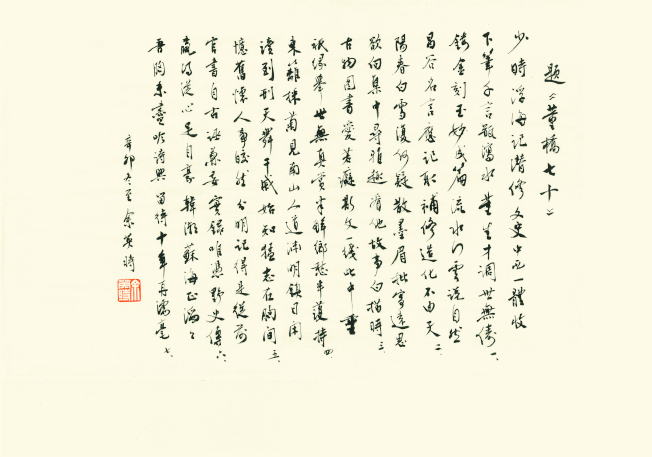 題《董橋七十》
少時浮海記潛修 文史中西一體收
下筆千言散瀉水 董生才調世無儔 一、
鎔金刻玉妙成篇 流水行雲說自然
昌谷名言應記取 補修造化不由天 二、
陽春白雪復何疑 散墨眉批寄遠思
欲向集中尋雅趣 請他故事白描時 三、
古物圖書愛若癡 斯文一綫此中
祇緣舉世無真賞 半解鄉愁半護持 四、
東籬採菊見南山 人道淵明鎮日閑
讀到刑天舞干戚 始知猛志在胸間 五、
憶舊懷人事皎然 分明記得是從前
官書自古誣兼妄 實錄唯憑野史傳 六、
贏得從心足自豪 韓潮蘇海正滔〻
吾胸未盡吟詩興 留待十年再濡毫 七、
辛卯冬至 余英時